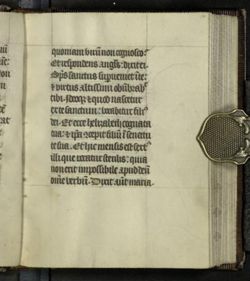 quoniam virū non cognosco?
Et respondens angls: dixit ei.
Sps sanctus supveniet ī te:
et virtus altissimi obūbrabt
tibi. Ideoq; et quod nascetur
ex te sanctum: vocabitur fili
dei. Et ecce helizabeth cognata
tua: et ipsa cōcepit filiū ī senectu
te sua. Et hic mensis est sext
illi que vocatur sterilis: quia
non erit impossibile apud deū
ōme verbū. Dixit aūt maria